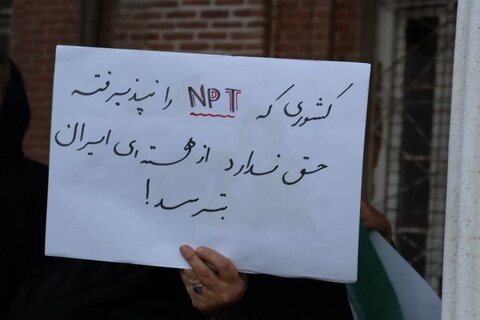 کشوری که NPT را نپذیرفته
حق ندارد از هسته‌ای ایران
بترسد!